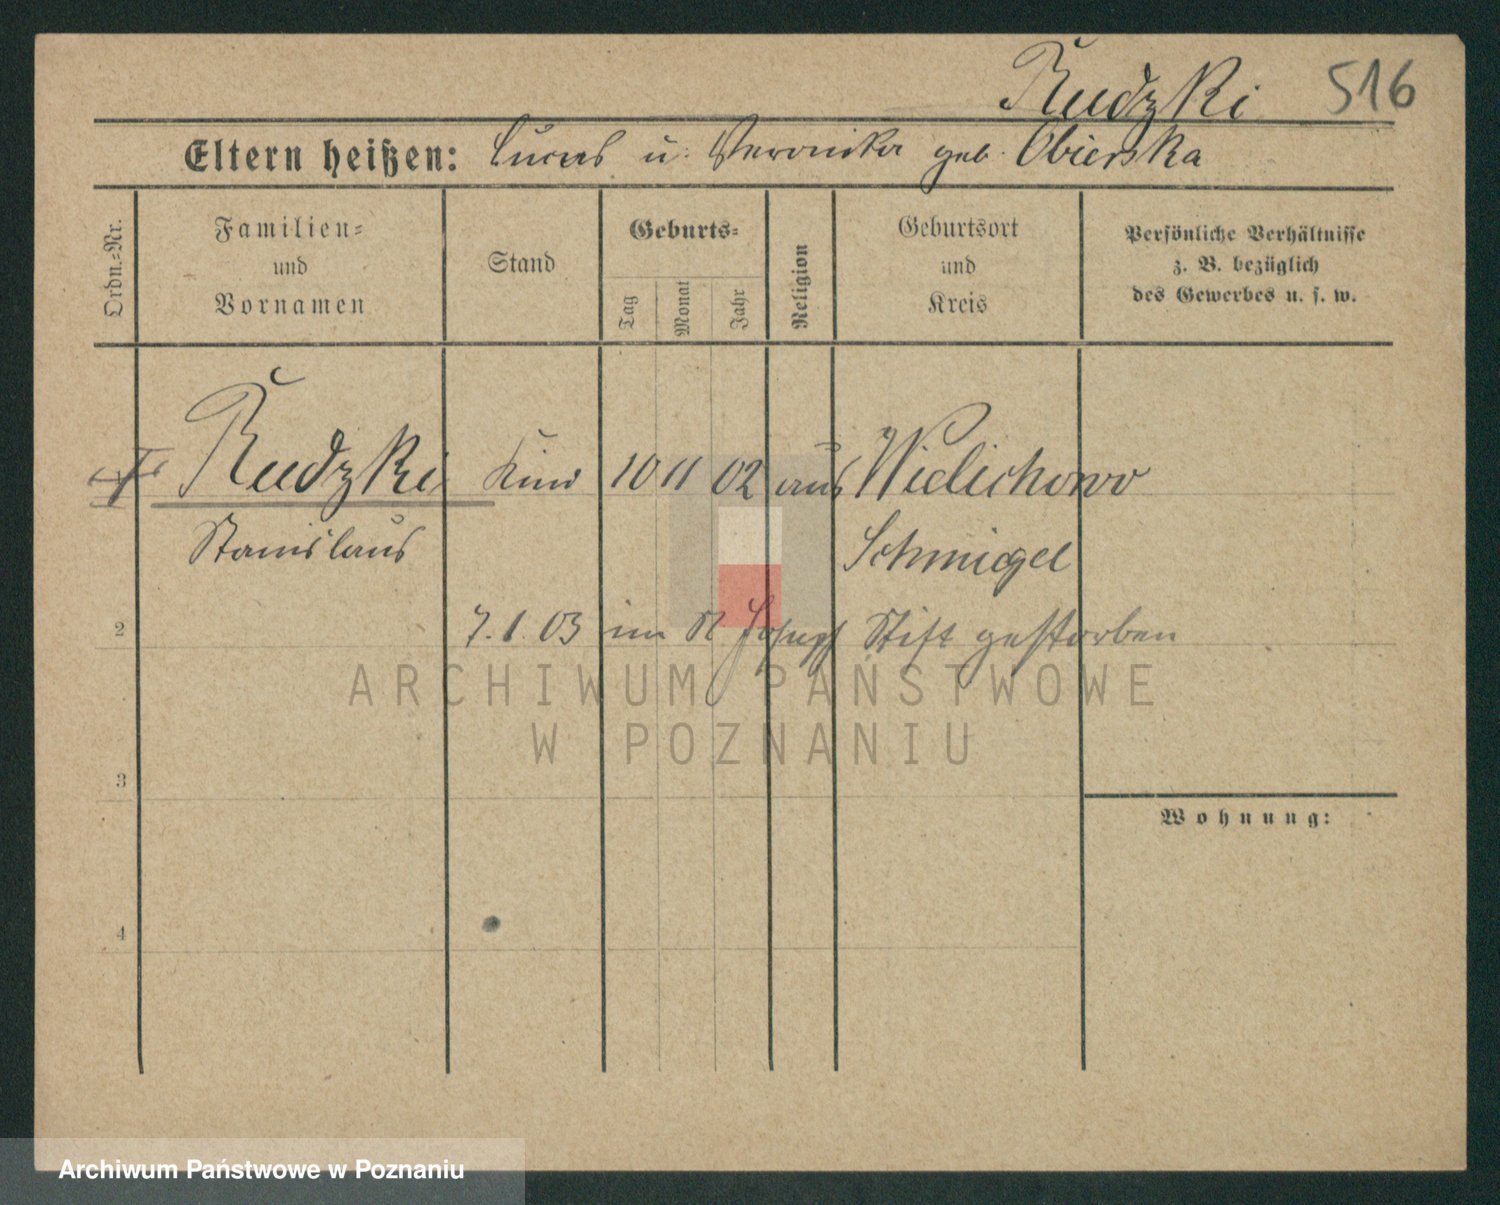 Rudzki 516
Eltern heißen: Lucas u. Veronika geb. Obierska
Ordn.-Nr.
Familien-
und
Vornamen
Stand
Geburts-
Tag
Monat
Jahr
Religion
Geburtsort
und
Kreis
Persönliche Verhältnisse
z. B. bezüglich
des Gewerbes u. s. w.
Rudzki Kind 10 11 02 aus Wielichowo
Stanislaus Schmigel
2 7.1.03 im St Josephs Stift gestorben
ARCHIWUM PAŃSTWOWE
W POZNANIU
3
Wohnung:
4
Archiwum Państwowe w Poznaniu